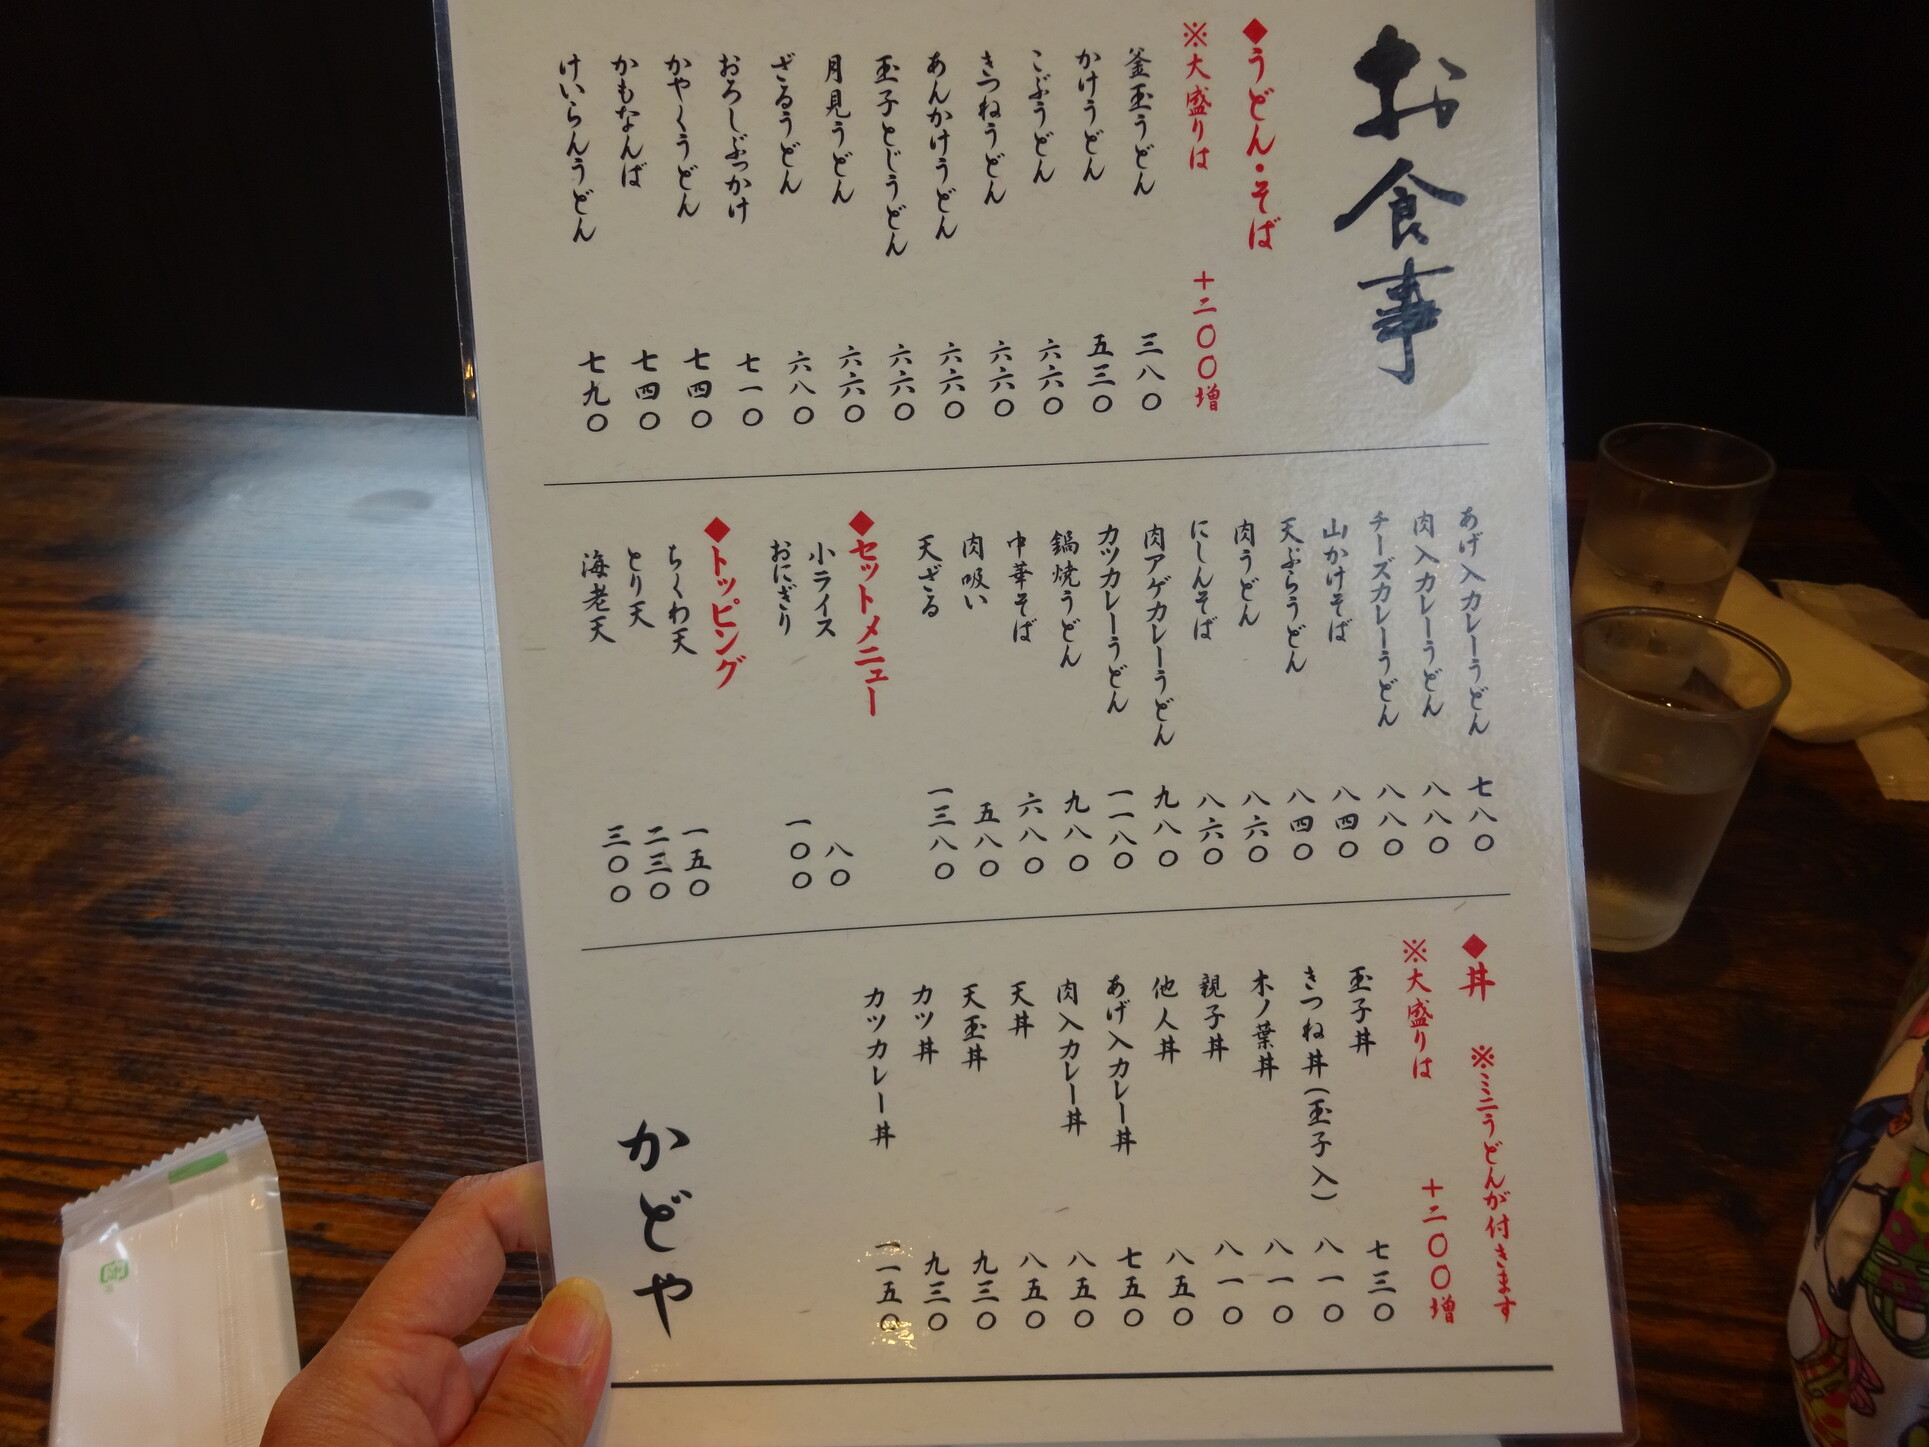 お食事
◆うどん・そば
※大盛りは 十二〇〇増
釜玉うどん 三八〇
かけうどん 五三〇
こぶうどん 六六〇
きつねうどん 六六〇
あんかけうどん 六六〇
玉子とじうどん 六六〇
月見うどん 六六〇
ざるうどん 六八〇
おろしぶっかけ 七一〇
かやくうどん 七四〇
かもなんば 七四〇
けいらんうどん 七九〇
あげ入カレーうどん 七八〇
肉入カレーうどん 八八〇
チーズカレーうどん 八八〇
山かけそば 八四〇
天ぷらうどん 八四〇
肉うどん 八六〇
にしんそば 八六〇
肉アゲカレーうどん 九八〇
カツカレーうどん 一一八〇
鍋焼うどん 九八〇
中華そば 六八〇
肉吸い 五八〇
天ざる 一三八〇
◆セットメニュー
小ライス 八〇
おにぎり 一〇〇
◆トッピング
ちくわ天 一五〇
とり天 二三〇
海老天 三〇〇
◆丼 ※ミニうどんが付きます
※大盛りは 十二〇〇増
玉子丼 七三〇
きつね丼(玉子入) 八一〇
木ノ葉丼 八一〇
親子丼 八一〇
他人丼 八五〇
あげ入カレー丼 七五〇
肉入カレー丼 八五〇
天丼 八五〇
天玉丼 九三〇
カツ丼 九三〇
カツカレー丼 一一五〇
かどや